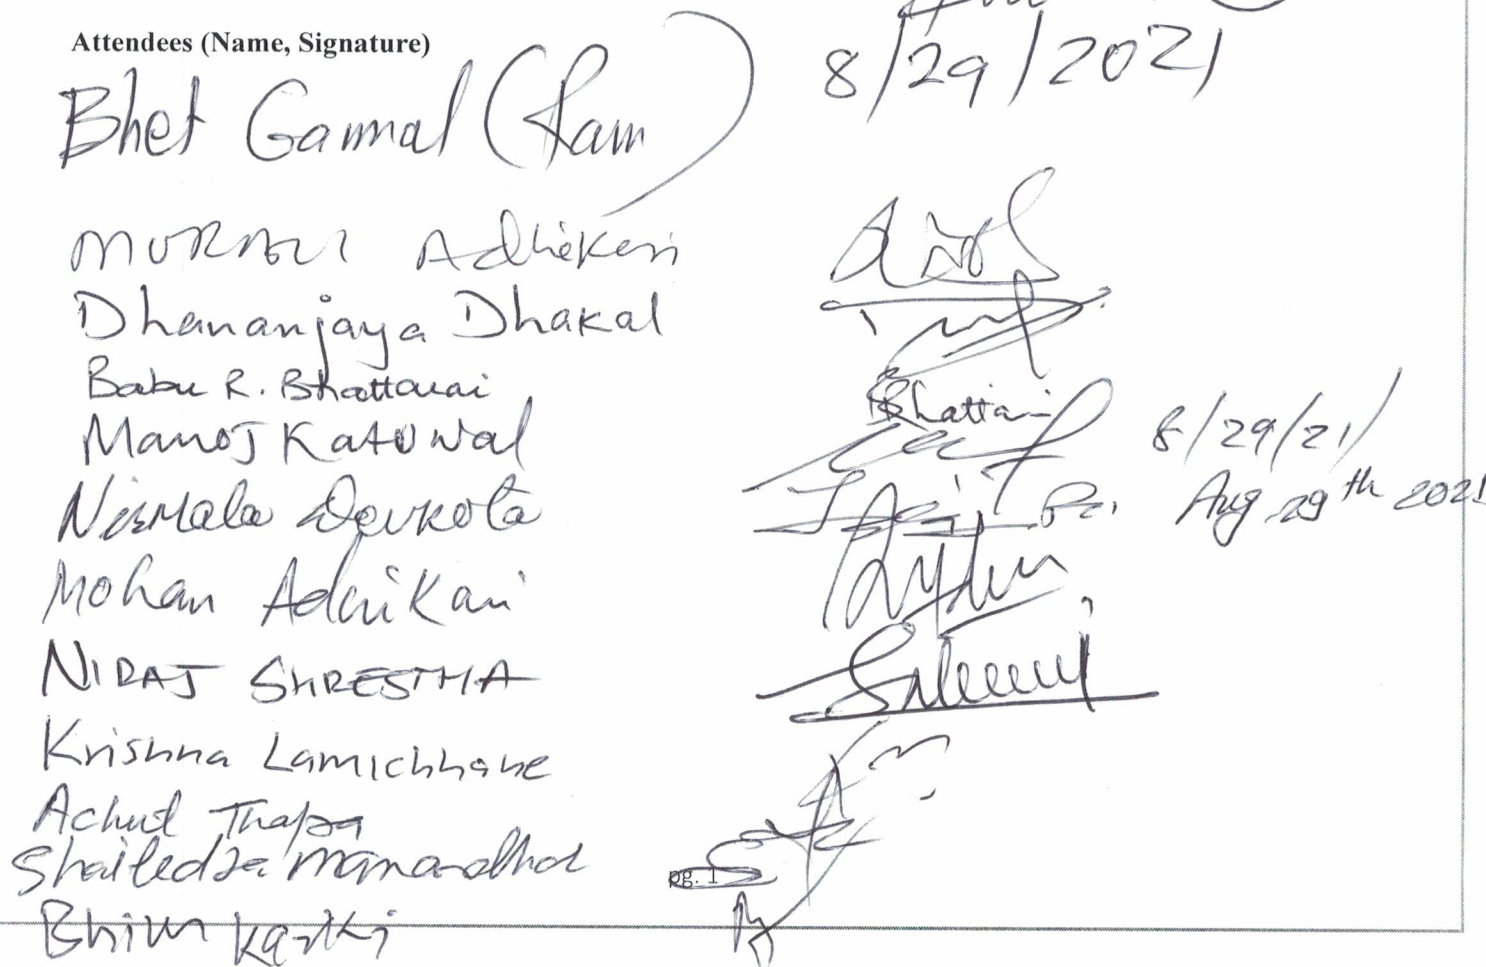 Attendees (Name, Signature)
8/29/2021
Bhet Gammal (Ram)
MURALI Adhikari
Dhananjaya Dhakal
Babu R. Bhattarai Bhattarai
Manoj Katuwal 8/29/21
Nirmala Devkota Aug 29th 2021
Mohan Adhikari
NIRAJ SHRESTHA
Krishna Lamichhane
Achut Thapa
Shailedra Manandhar
pg. 1
Bhim Karki